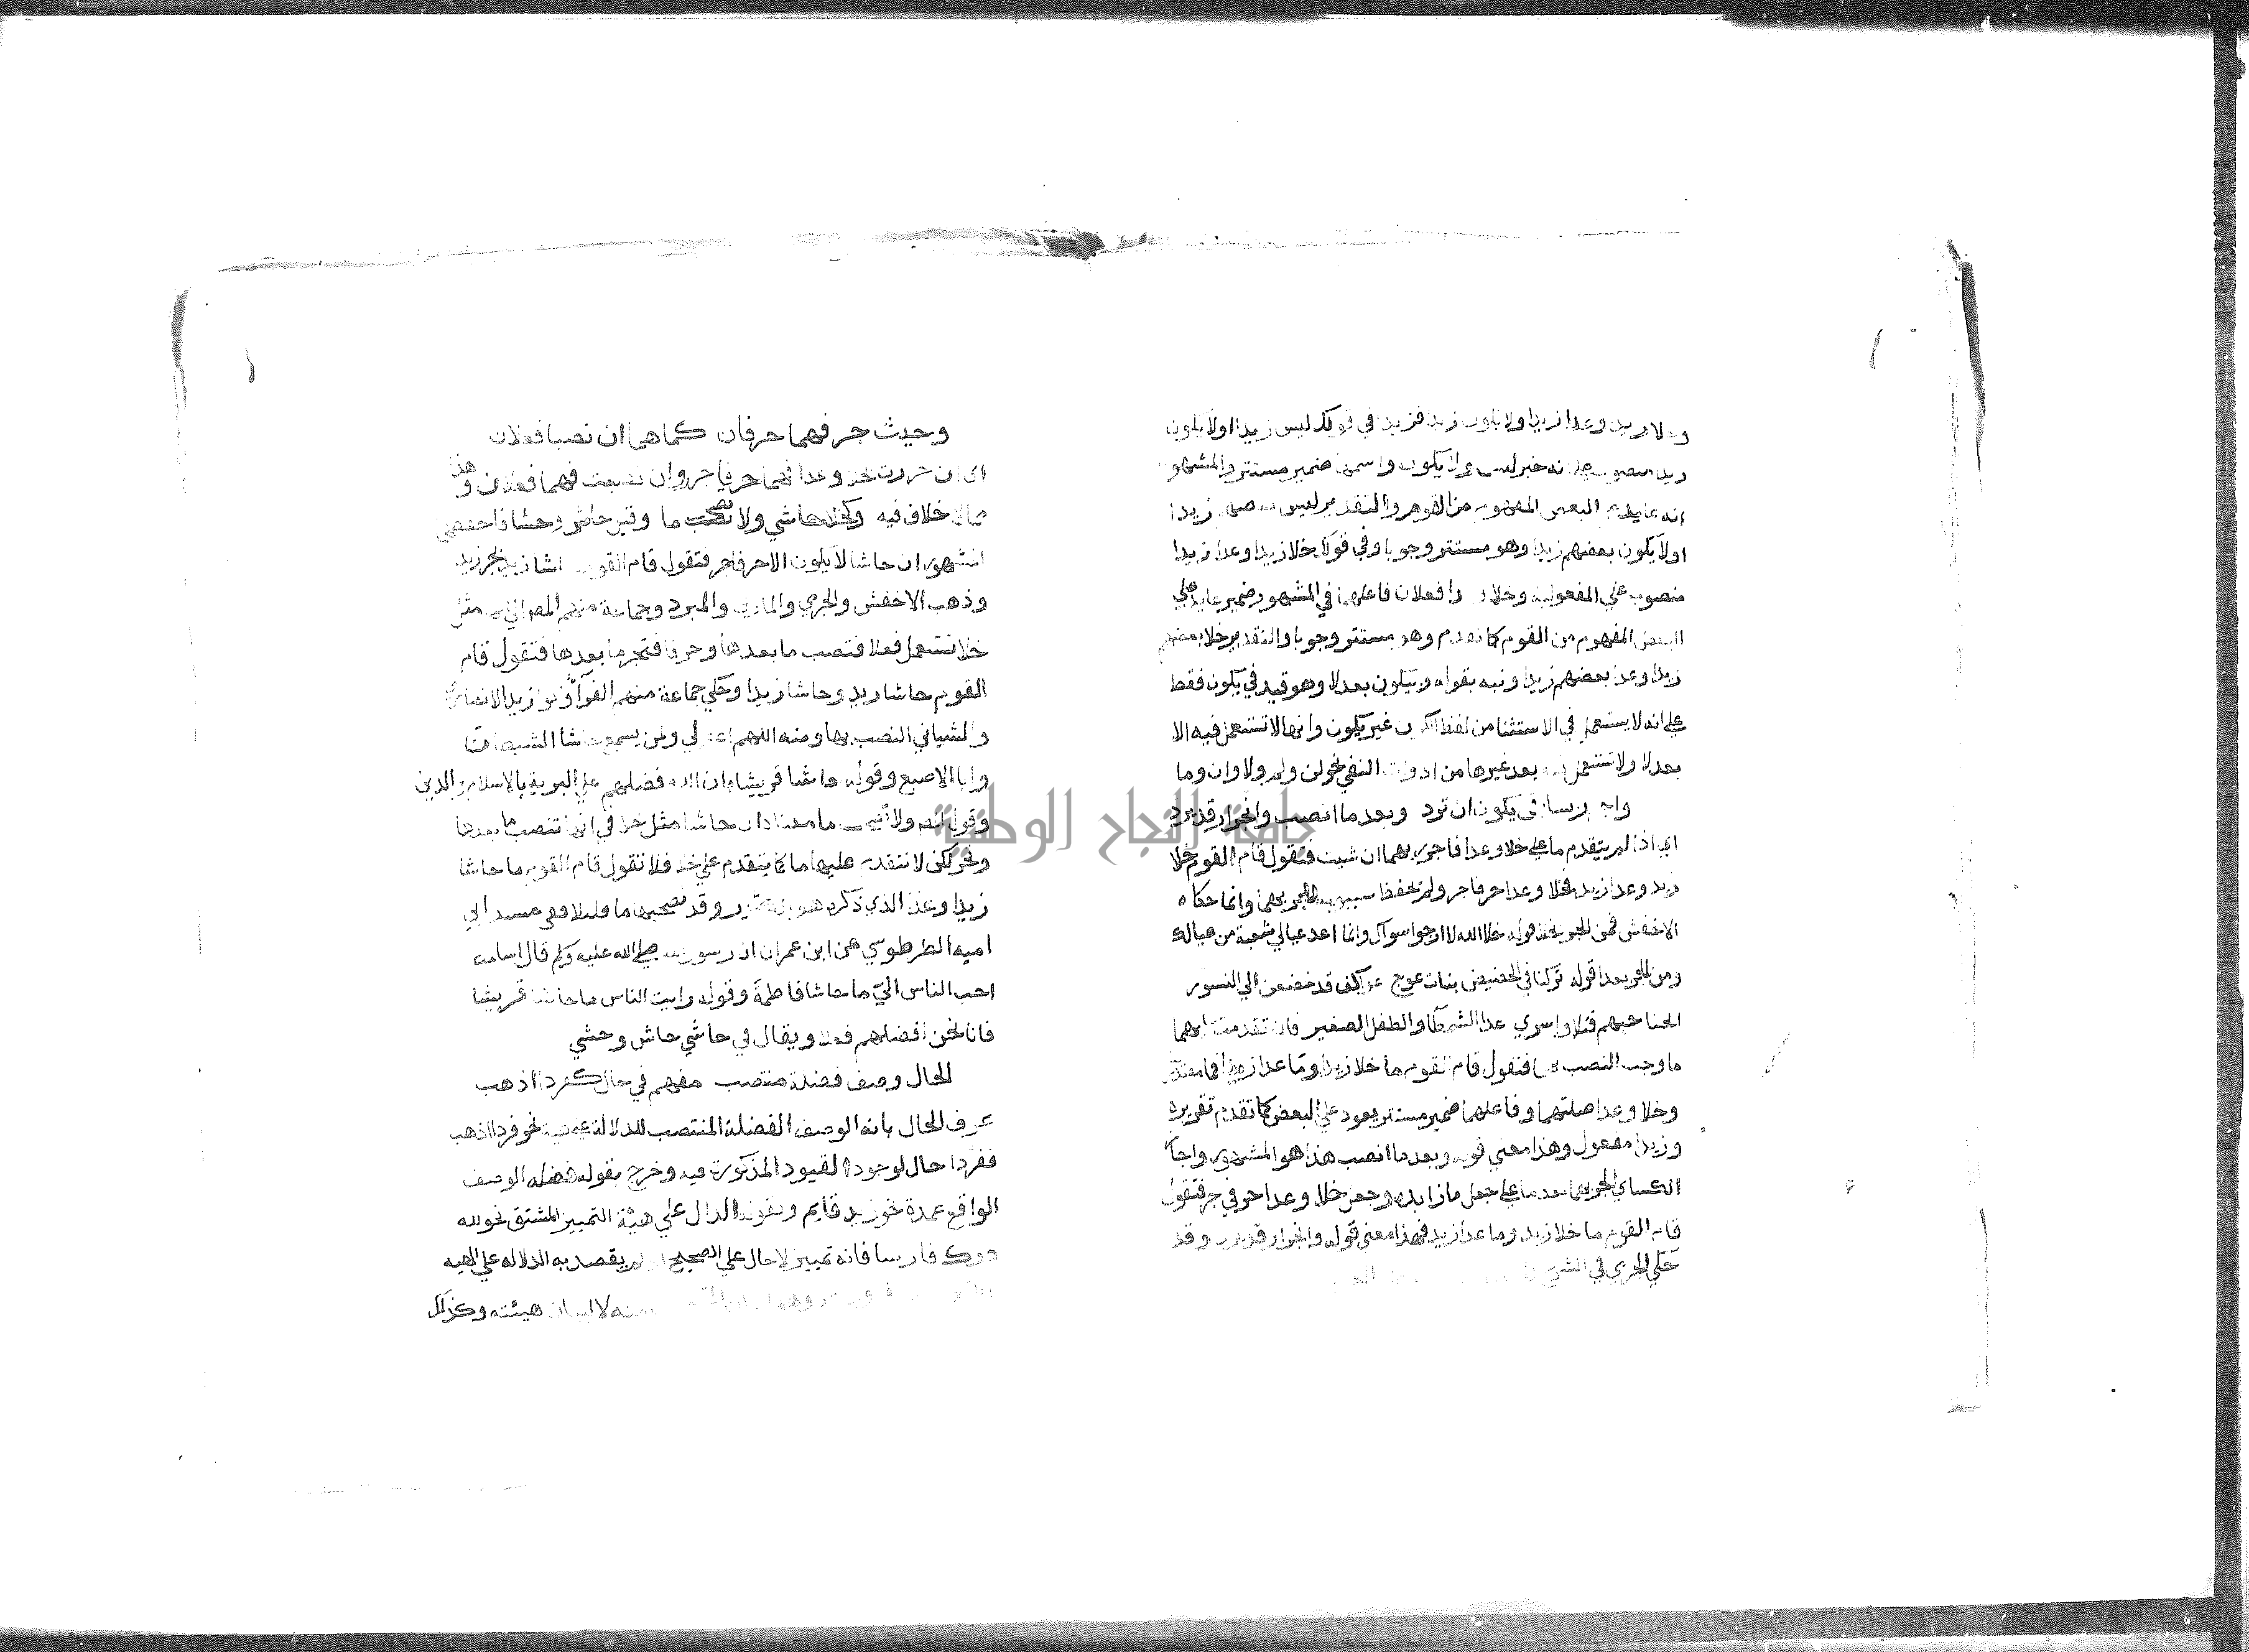 وخلا زيدا وعدا زيدا ولا يكون زيدا فزيدا في قولك ليس زيدا اولا يكون
زيدا منصوب علي انه خبر ليس ولا يكون واسمها ضمير مستتر والمشهور
انه عايد علي البعض المفهوم من القوم والتقدير ليس بعضهم زيدا
اولا يكون بعضهم زيدا وهو مستتر وجوبا وفي قولك خلا زيدا وعدا زيدا
منصوب علي المفعولية وخلا وعدا فعلان فاعلهما في المشهور ضمير عايد علي
البعض المفهوم من القوم كما تقدم وهو مستتر وجوبا والتقدير خلا بعضهم
زيدا وعدا بعضهم زيدا ونبه بقوله وبيكون بعد لا وهو قيد في يكون فقط
علي انه لا يستعمل في الاستثنا من لفظ الكون غير يكون وانها لا تستعمل فيه الا
بعد لا ولا تستعمل فيه بعد غيرها من ادوات النفي نحو لن ولم ولا وان وما
واجرر بسابقي يكون ان ترد وبعد ما انصب وانجرار قد يرد
اي اذا لم يتقدم ما علي خلا وعدا فاجرر بهما ان شيت فتقول قام القوم خلا
زيد وعدا زيد فخلا وعدا حرفا جر ولم يحفظ سيبويه الجر بهما وانما حكاه
الاخفش فمن الجر بخلا قوله خلا الله لا ارجوا سواك وانما اعد عيالي شعبة من عيالك
ومن الجر بعدا قوله تركنا في الحضيض بنات عوج عواكف قد خضعن الي النسور
ابحنا حيهم قتلا واسري عدا الشمطا والطفل الصغير فان تقدمت عليهما
ما وجب النصب بهما فتقول قام القوم ما خلا زيدا وما عدا زيدا فما مصدرية
وخلا وعدا صلتهما وفاعلهما ضمير مستتر يعود علي البعض كما تقدم تقريره
وزيدا مفعول وهذا معني قوله وبعد ما انصب هذا هو المشهور واجاز
الكساي الجر بهما بعد ما علي جعل ما زايدة وجعل خلا وعدا حرفي جر فتقول
قام القوم ما خلا زيد وما عدا زيد فهذا معني قوله وانجرار قد يرد وقد
حكي الجرمي في الشرح
وحيث جر فهما حرفان كما هما ان نصبا فعلان
اي ان جررت بخلا وعدا فهما حرفا جر وان نصبت فهما فعلان وهذا
مما لا خلاف فيه وكخلا حاشي ولا تصحب ما وقيل حاش وحشا فاحفظهما
المشهور ان حاشا لا يكون الا حرف جر فتقول قام القوم حاشا زيد بجر زيد
وذهب الاخفش والجرمي والمازني والمبرد وجماعة منهم المصنف الي انها مثل
خلا تستعمل فعلا فتنصب ما بعدها وحرفا فتجر ما بعدها فتقول قام
القوم حاشا زيد وحاشا زيدا وحكي جماعة منهم الفرا وابو زيد الانصاري
والشيباني النصب بها ومنه اللهم اغفر لي ولمن يسمع حاشا الشيطان
وابا الاصبع وقوله حاشا قريشا فان الله فضلهم علي البرية بالاسلام والدين
وقول المصنف ولا تصحب ما معناه ان حاشا مثل خلا في انها تنصب ما بعدها
وتجر لكن لا تتقدم عليها ما كما يتقدم علي خلا فلا تقول قام القوم ما حاشا
زيدا وهذا الذي ذكره هو الكثير وقد تصحبها ما قليلا ففي مسند ابي
امية الطرطوسي عن ابن عمر ان رسول الله صلي الله عليه وسلم قال اسامة
احب الناس الي ما حاشا فاطمة وقوله رايت الناس ما حاشا قريشا
فانا نحن افضلهم فعلا ويقال في حاشي حاش وحشي
الحال وصف فضلة منتصب مفهم في حال كفردا اذهب
عرف الحال بانه الوصف الفضلة المنتصب للدلالة علي هيئة نحو فردا اذهب
ففردا حال لوجود القيود المذكورة فيه وخرج بقوله فضلة الوصف
الواقع عمدة نحو زيد قايم وبقوله الدال علي هيئة التمييز المشتق نحو لله
درك فارسا فانه تمييز لا حال علي الصحيح اذ لم يقصد به الدلالة علي الهيه
منه لا لبيان هيئته وكذلك
جامعة النجاح الوطنية